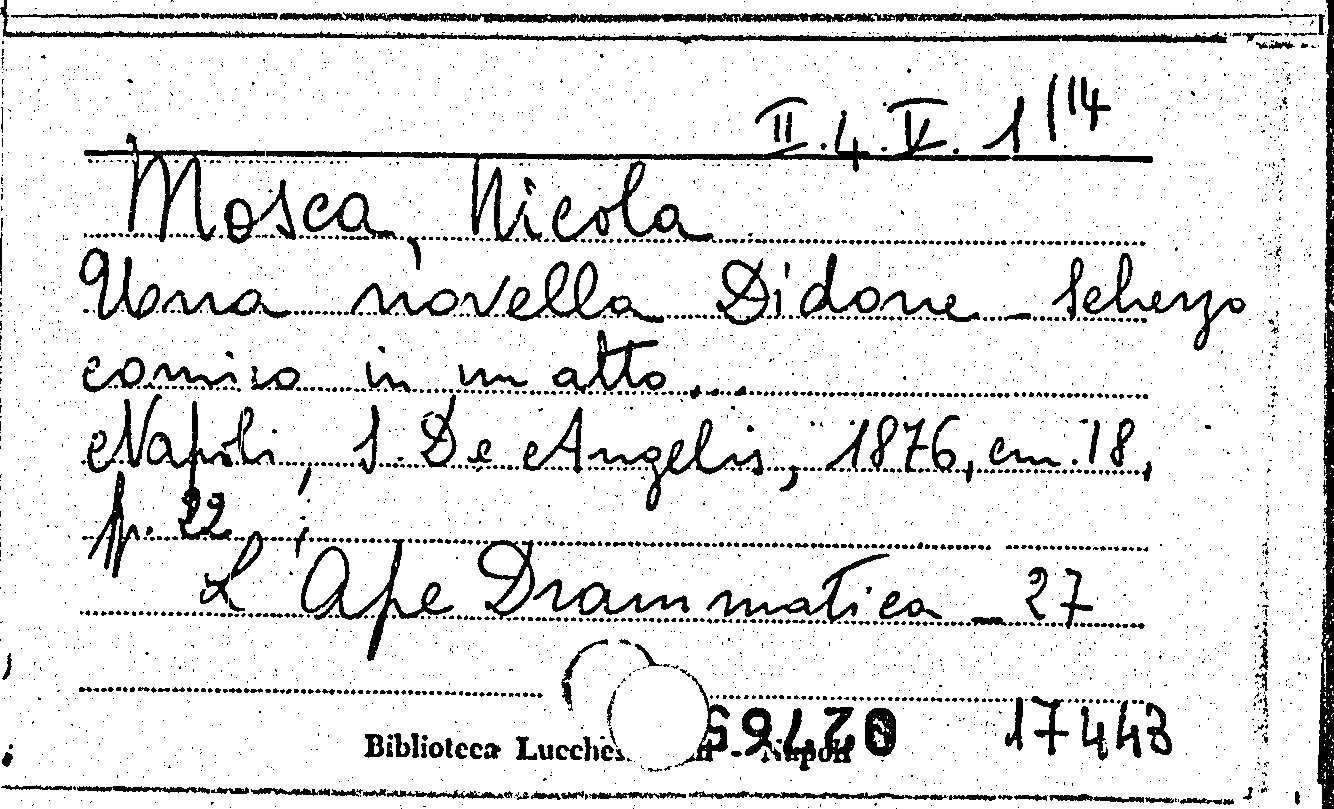 II.4.V.1(14
Mosca, Nicola
Una novella Didone - Scherzo
comico in un atto...
Napoli, S. De Angelis, 1876, cm. 18,
p. 22;
L'Ape Drammatica - 27
17443
Biblioteca - Napoli